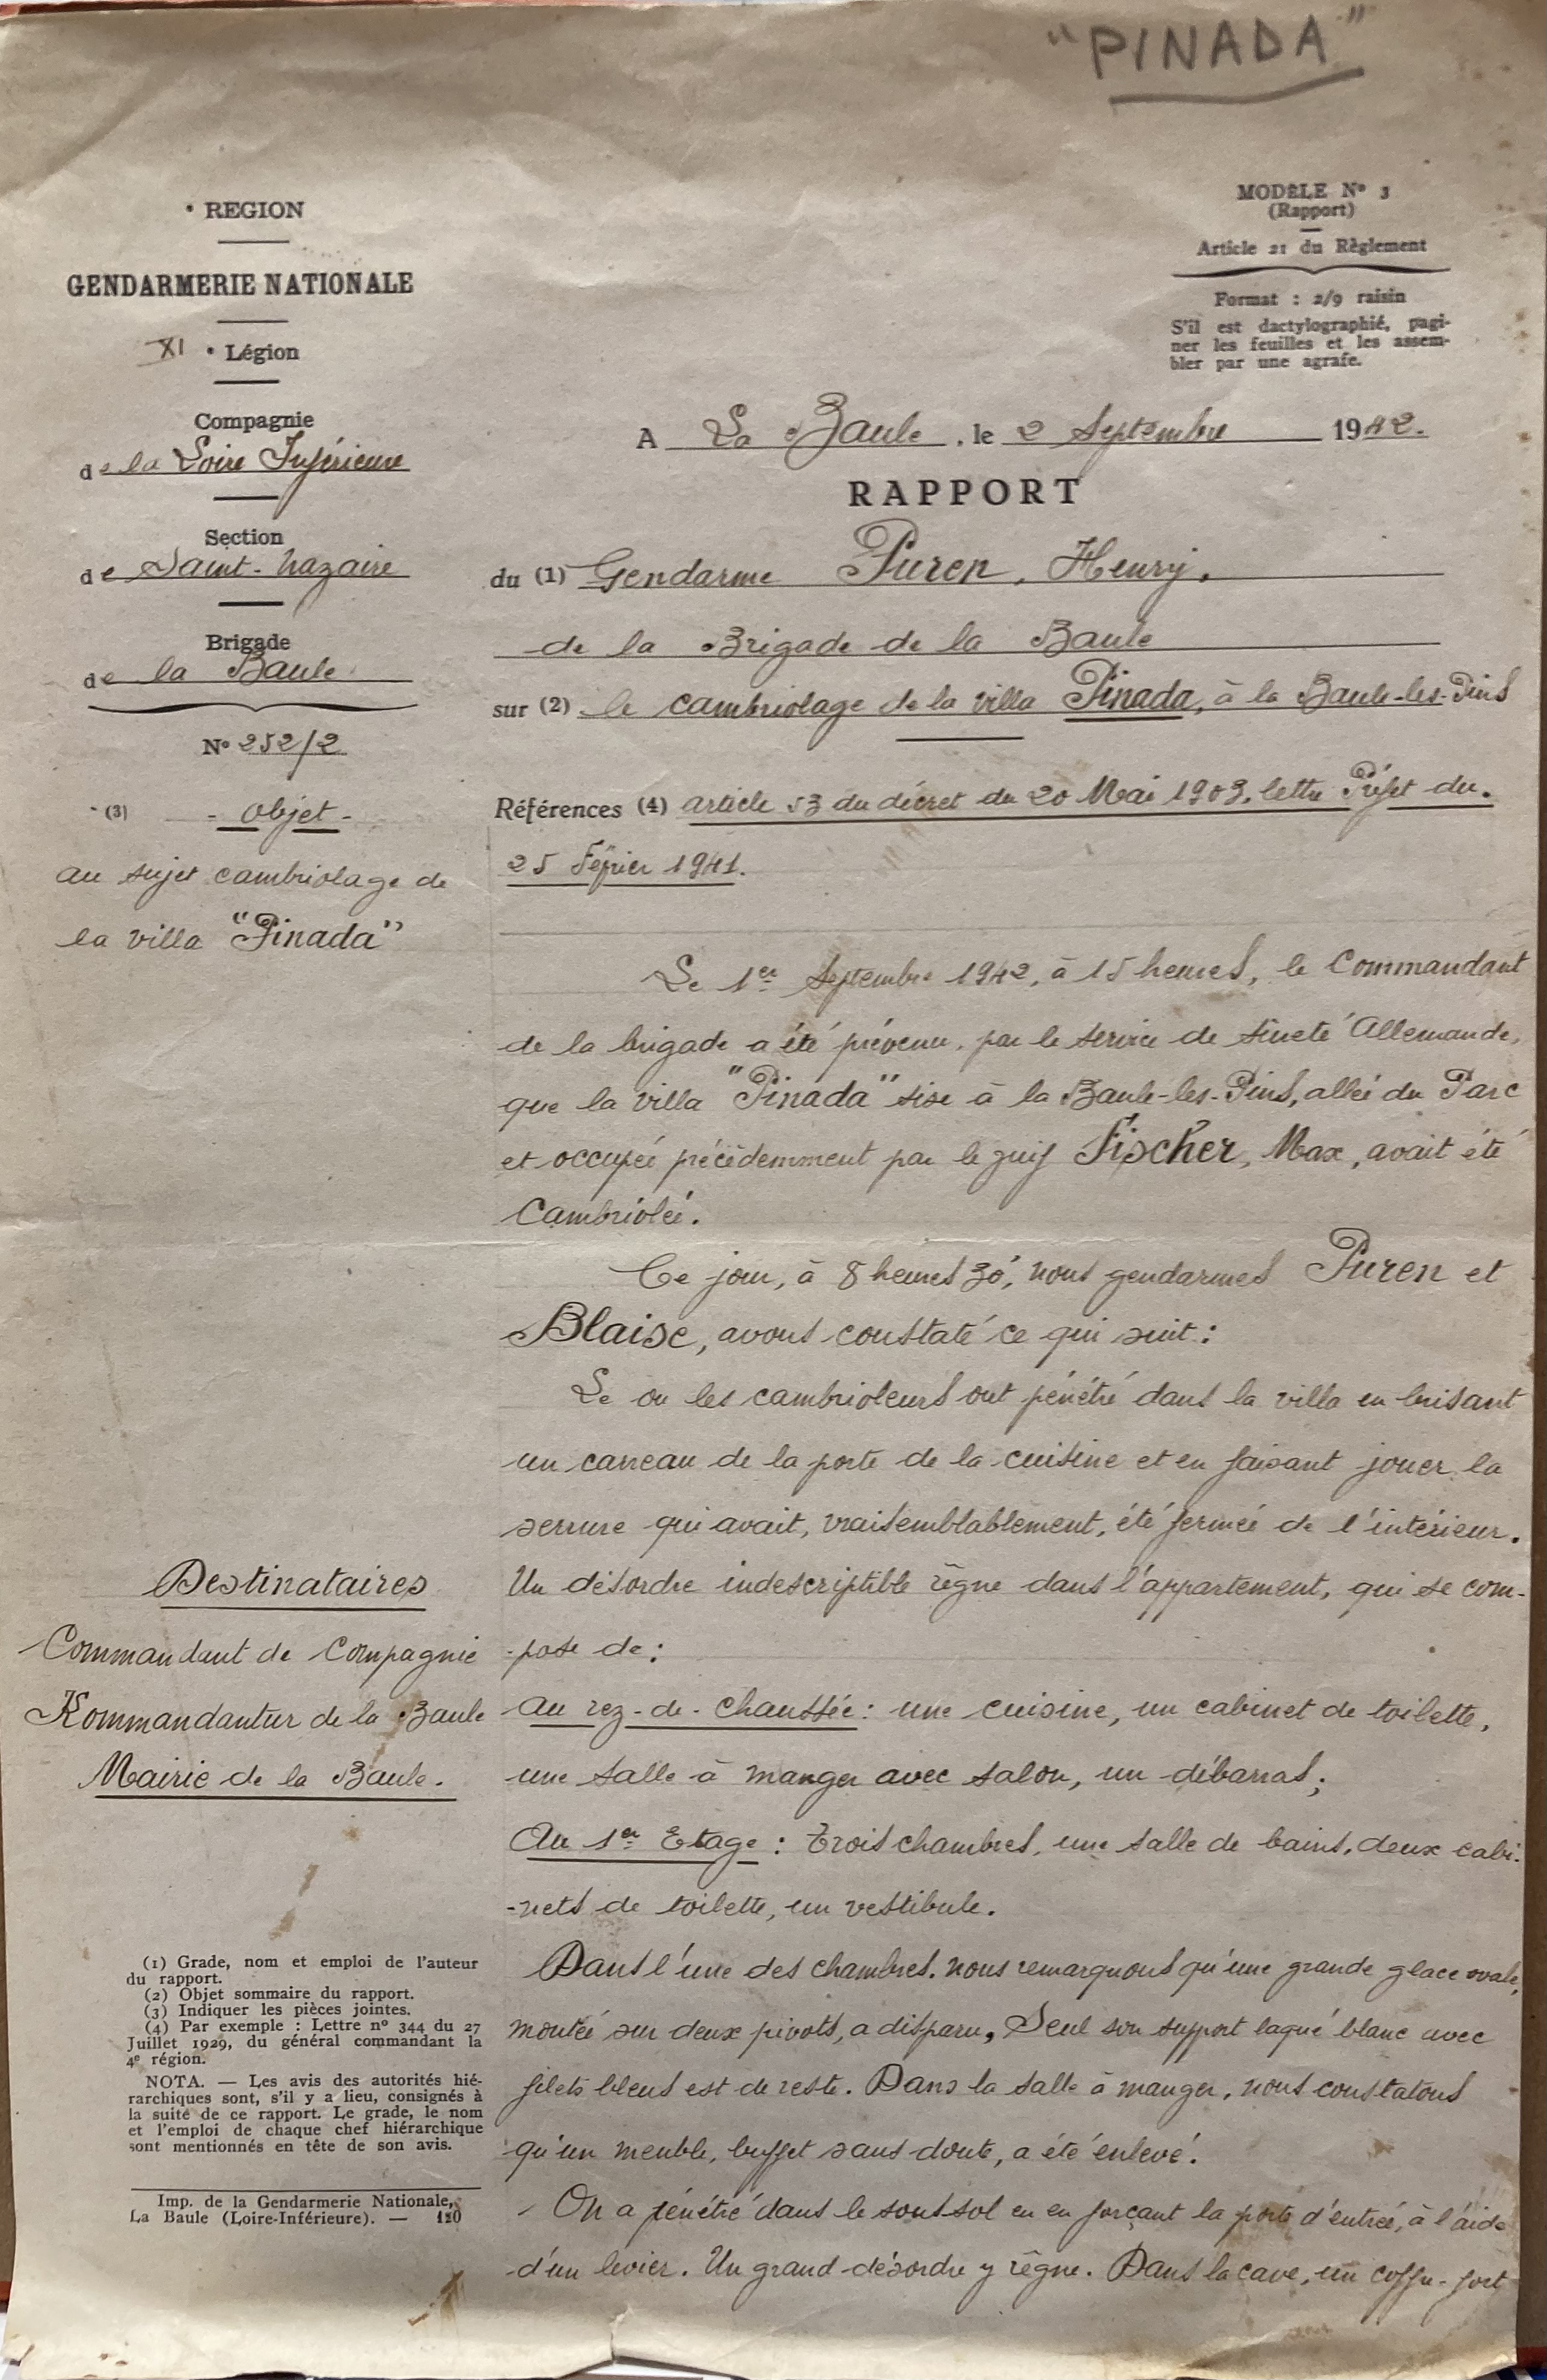 "PINADA"
• REGION
GENDARMERIE NATIONALE
XI • Légion
Compagnie
de la Loire Inférieure
Section
de Saint-Nazaire
Brigade
de la Baule
N° 252/2
(3) - Objet -
au sujet cambriolage de
la villa "Pinada"
MODÈLE N° 3
(Rapport)
Article 21 du Règlement
Format : 2/9 raisin
S'il est dactylographié, pagi-
ner les feuilles et les assem-
bler par une agrafe.
A La Baule, le 2 Septembre 1942.
RAPPORT
du (1) Gendarme Puren, Henry,
de la Brigade de la Baule
sur (2) le cambriolage de la villa Pinada, à la Baule-les-Pins
Références (4) article 53 du décret du 20 Mai 1903, lettre Préfet du
25 Février 1941.
Le 1er Septembre 1942, à 15 heures, le Commandant
de la brigade a été prévenu, par le service de sûreté Allemande,
que la villa "Pinada" sise à la Baule-les-Pins, allée du Parc
et occupée précédemment par le juif Fischer, Max, avait été
Cambriolée.
Ce jour, à 8 heures 30', nous gendarmes Puren et
Blaise, avons constaté ce qui suit :
Le ou les cambrioleurs ont pénétré dans la villa en brisant
un carreau de la porte de la cuisine et en faisant jouer la
serrure qui avait, vraisemblablement, été fermée de l'intérieur.
Un désordre indescriptible règne dans l'appartement, qui se com-
-pose de :
au rez-de-chaussée : une cuisine, un cabinet de toilette,
une salle à manger avec salon, un débarras ;
Au 1er Etage : Trois chambres, une salle de bains, deux cabi-
-nets de toilette, un vestibule.
Dans l'une des chambres, nous remarquons qu'une grande glace ovale,
montée sur deux pivots, a disparu, Seul son support laqué blanc avec
filets bleus est de reste. Dans la salle à manger, nous constatons
qu'un meuble, buffet sans doute, a été enlevé.
- On a pénétré dans le sous-sol en en forçant la porte d'entrée, à l'aide
d'un levier. Un grand désordre y règne. Dans la cave, un coffre-fort
Destinataires
Commandant de Compagnie
Kommandantur de la Baule
Mairie de la Baule.
(1) Grade, nom et emploi de l'auteur
du rapport.
(2) Objet sommaire du rapport.
(3) Indiquer les pièces jointes.
(4) Par exemple : Lettre n° 344 du 27
Juillet 1929, du général commandant la
4e région.
NOTA. — Les avis des autorités hié-
rarchiques sont, s'il y a lieu, consignés à
la suite de ce rapport. Le grade, le nom
et l'emploi de chaque chef hiérarchique
sont mentionnés en tête de son avis.
Imp. de la Gendarmerie Nationale,
La Baule (Loire-Inférieure). — 120